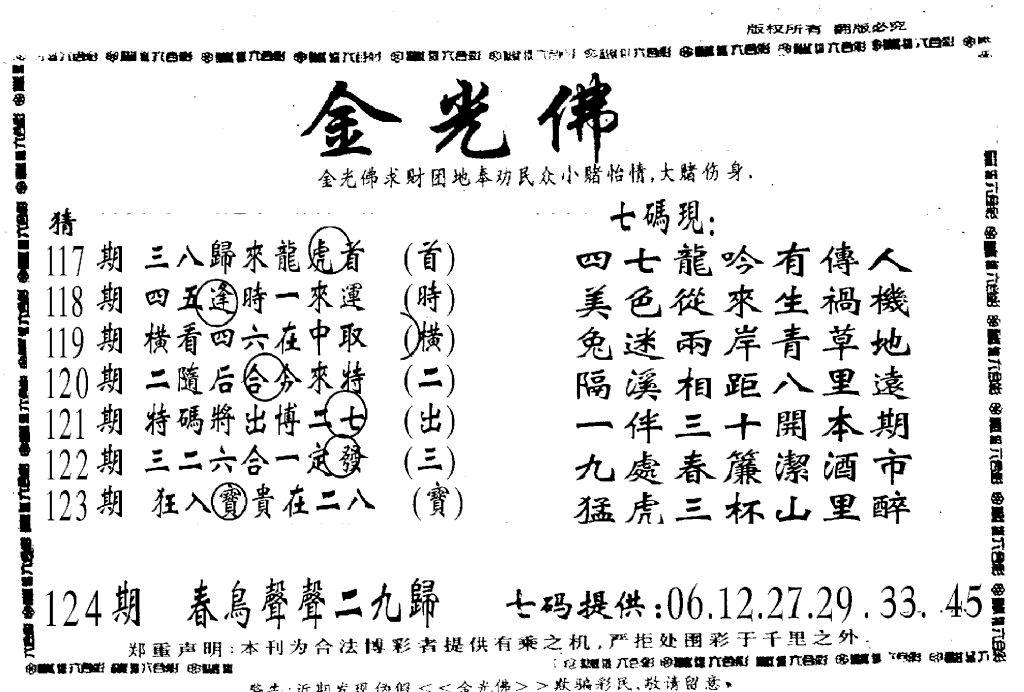 版权所有 翻版必究
金光佛
金光佛求财团地奉劝民众小赌怡情,大赌伤身.
猜
117期 三八歸來龍虎首 (首)
118期 四五逢時一來運 (時)
119期 橫看四六在中取 (橫)
120期 二隨后合夯來特 (二)
121期 特碼將出博二七 (出)
122期 三二六合一定發 (三)
123期 狂入寶貴在二八 (寶)
七碼現:
四七龍吟有傳人
美色從來生禍機
兔迷兩岸青草地
隔溪相距八里遠
一伴三十開本期
九處春簾潔酒市
猛虎三杯山里醉
124期 春鳥聲聲二九歸 七码提供:06.12.27.29.33.45
郑重声明:本刊为合法博彩者提供有乘之机,严拒处围彩于千里之外.
警告:近期发现伪假<<金光佛>>欺骗彩民,敬请留意。